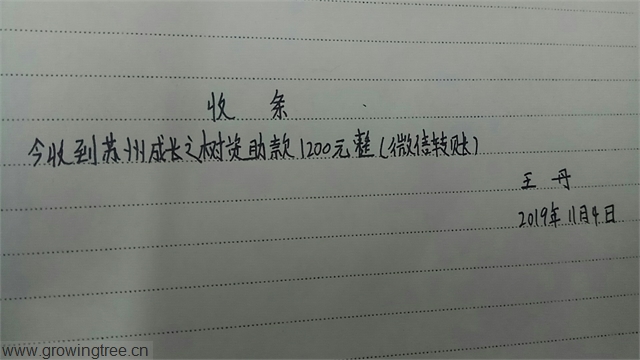 收条
今收到苏州成长之树资助款1200元整(微信转账)
王丹
2019年11月4日
www.growingtree.cn